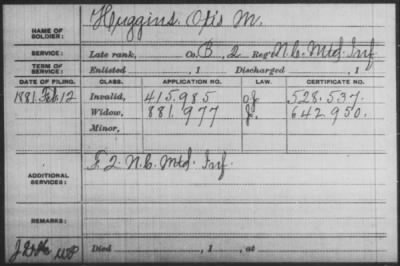 NAME OF SOLDIER: Huggins, Otis M.
SERVICE: Late rank, Co. B, 2 Reg't N.C. Mtd. Inf
TERM OF SERVICE: Enlisted , 1 Discharged , 1
DATE OF FILING. CLASS. APPLICATION NO. LAW. CERTIFICATE NO.
1881. Feb. 12 Invalid, 415.985 528.537.
Widow, 881.977 642.950.
Minor,
ADDITIONAL SERVICES: F. 2. N.C. Mtd. Inf.
REMARKS:
Died , 1 , at